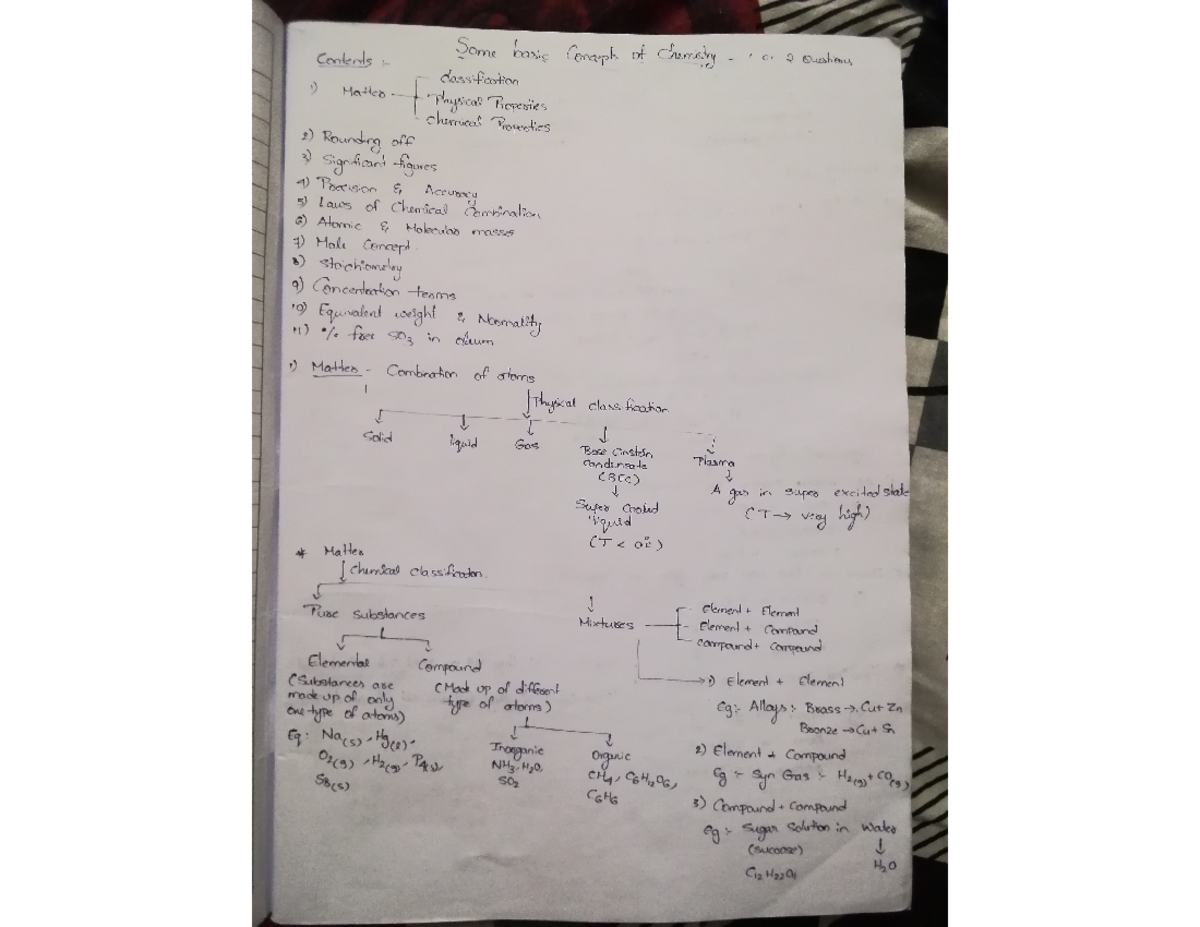 Some basic Concepts of Chemistry - 2 Questions
Contents :-
1) Matter
classification
Physical Properties
chemical Properties
2) Rounding off
3) Significant figures
4) Precision & Accuracy
5) Laws of Chemical Combination
6) Atomic & Molecular masses
7) Mole Concept.
8) Stoichiometry
9) Concentration terms
10) Equivalent weight & Normality
11) % free SO3 in oleum
1) Matter - Combination of atoms
Physical classification
Solid liquid Gas Bose Einstein Plasma
Condensate
(BEC)
A gas in super excited state
(T → very high)
Super Cooled
liquid
(T < 0°c)
* Matter
Chemical classification.
Pure substances
Mixtures
Element + Element
Element + Compound
Compound + Compound
Elemental Compound
(Substances are
made up of only
one type of atoms)
(Made up of different
type of atoms)
Eg: Na(s), Hg(l),
O2(g), H2(g), P4(s),
S8(s)
Inorganic
NH3, H2O,
SO2
Organic
CH4, C6H12O6,
C6H6
1) Element + Element
Eg:- Alloys :- Brass → Cu+ Zn
Bronze → Cu+ Sn
2) Element + Compound
Eg :- Syn Gas :- H2(g) + CO(g)
3) Compound + Compound
Eg :- Sugar Solution in Water
(sucrose) ↓
C12H22O11 H2O